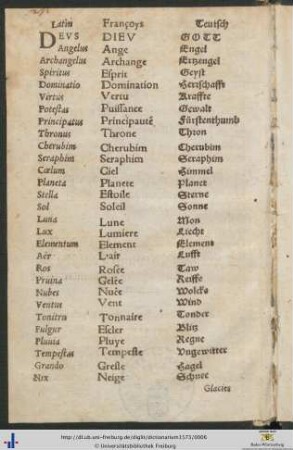 Latin Françoys Teutsch
DEVS DIEV GOTT
Angelus Ange Engel
Archangelus Archange Ertzengel
Spiritus Esprit Geyst
Dominatio Domination Herrschafft
Virtus Vertu Kraffte
Potestas Puissance Gewalt
Principatus Principauté Fürstenthumb
Thronus Throne Thron
Cherubim Cherubim Cherubim
Seraphim Seraphim Seraphim
Cœlum Ciel Himmel
Planeta Planete Planet
Stella Estoile Sterne
Sol Soleil Sonne
Luna Lune Mon
Lux Lumiere Liecht
Elementum Element Element
Aër L'air Lufft
Ros Rosée Taw
Pruina Gelée Reiffe
Nubes Nuée Wolcke
Ventus Vent Wind
Tonitru Tonnaire Tonder
Fulgur Escler Blitz
Pluuia Pluye Regne
Tempestas Tempeste Vngewitter
Grando Gresle Hagel
Nix Neige Schnee
Glacies
http://dl.ub.uni-freiburg.de/diglit/dictionarium1573/0006
© Universitätsbibliothek Freiburg